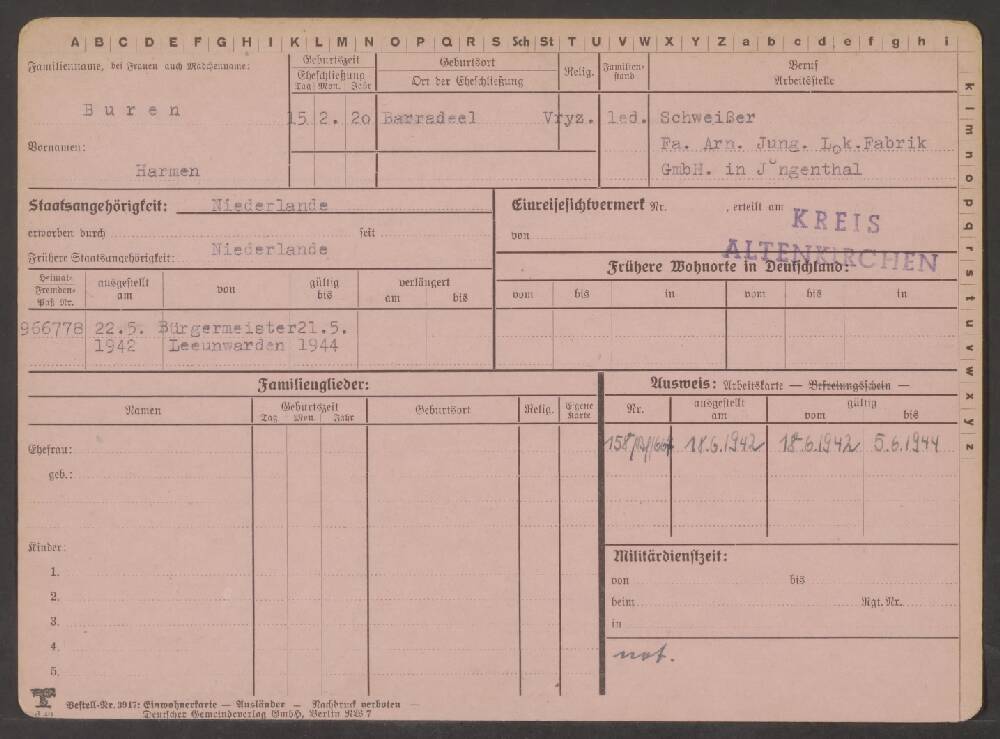 A B C D E F G H I K L M N O P Q R S Sch St T U V W X Y Z a b c d e f g h i
k l m n o p q r s t u v w x y z
Familienname, bei Frauen auch Mädchenname:
Buren
Vornamen:
Harmen
Geburtszeit
Eheschließung
Tag Mon. Jahr
15.2.20
Geburtsort
Ort der Eheschließung
Barradeel
Relig.
Vryz.
Familien-
stand
led.
Beruf
Arbeitsstelle
Schweißer
Fa. Arn. Jung. Lok.Fabrik
GmbH. in Jungenthal
Staatsangehörigkeit: Niederlande
erworben durch seit
Frühere Staatsangehörigkeit: Niederlande
Einreisesichtvermerk Nr. , erteilt am
von
KREIS
ALTENKIRCHEN
Heimat-
Fremden-
Paß Nr.
ausgestellt
am
von
gültig
bis
verlängert
am bis
966778 22.5. Bürgermeister 21.5.
1942 Leeunwarden 1944
Frühere Wohnorte in Deutschland:
vom bis in vom bis in
Familienglieder:
Namen
Geburtszeit
Tag Mon. Jahr
Geburtsort
Relig.
Eigene
Karte
Ehefrau:
geb.:
Kinder:
1.
2.
3.
4.
5.
Ausweis: Arbeitskarte — Befreiungsschein —
Nr.
ausgestellt
am
gültig
vom bis
18.6.1942 18.6.1942 5.6.1944
Militärdienstzeit:
von bis
beim Rgt. Nr.
in
not.
Bestell-Nr. 3917: Einwohnerkarte — Ausländer — Nachdruck verboten —
Deutscher Gemeindeverlag GmbH, Berlin NW 7